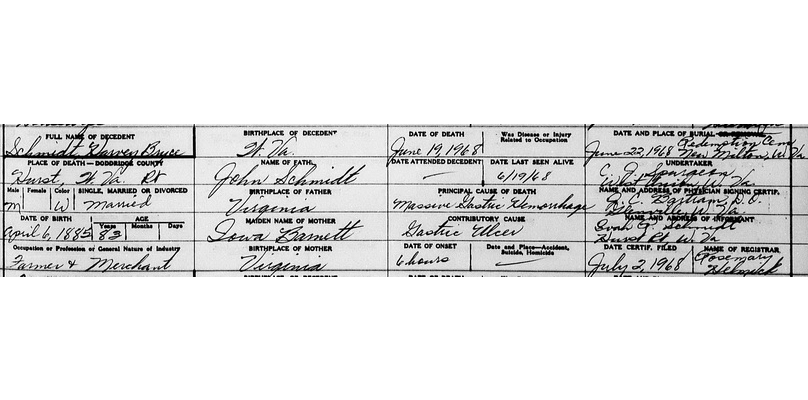 FULL NAME OF DECEDENT
Schmidt Harvey Bruce
PLACE OF DEATH — DODDRIDGE COUNTY
Hurst, W. Va. Rt
Male Female Color SINGLE, MARRIED OR DIVORCED
M W Married
DATE OF BIRTH AGE
Years Months Days
April 6, 1885 83
Occupation or Profession or General Nature of Industry
Farmer & Merchant
BIRTHPLACE OF DECEDENT
W. Va.
NAME OF FATH
John Schmidt
BIRTHPLACE OF FATHER
Virginia
MAIDEN NAME OF MOTHER
Iowa Barnett
BIRTHPLACE OF MOTHER
Virginia
DATE OF DEATH Was Disease or Injury
Related to Occupation
June 19, 1968
DATE ATTENDED DECEDENT DATE LAST SEEN ALIVE
— 6/19/68
PRINCIPAL CAUSE OF DEATH
Massive Gastric Hemorrhage
CONTRIBUTORY CAUSE
Gastric Ulcer
DATE OF ONSET Date and Place—Accident,
Suicide, Homicide
6 hours —
DATE AND PLACE OF BURIAL
Redemption Cem
June 22, 1968 New Milton, W. Va
UNDERTAKER
C. J. Spurgeon
NAME AND ADDRESS OF PHYSICIAN SIGNING CERTIF.
C. Bartram, D.O.
W. Va.
NAME AND ADDRESS OF INFORMANT
Schmidt
Hurst Rt W. Va
DATE CERTIF. FILED NAME OF REGISTRAR
July 2, 1968 Rosemary
Helmick